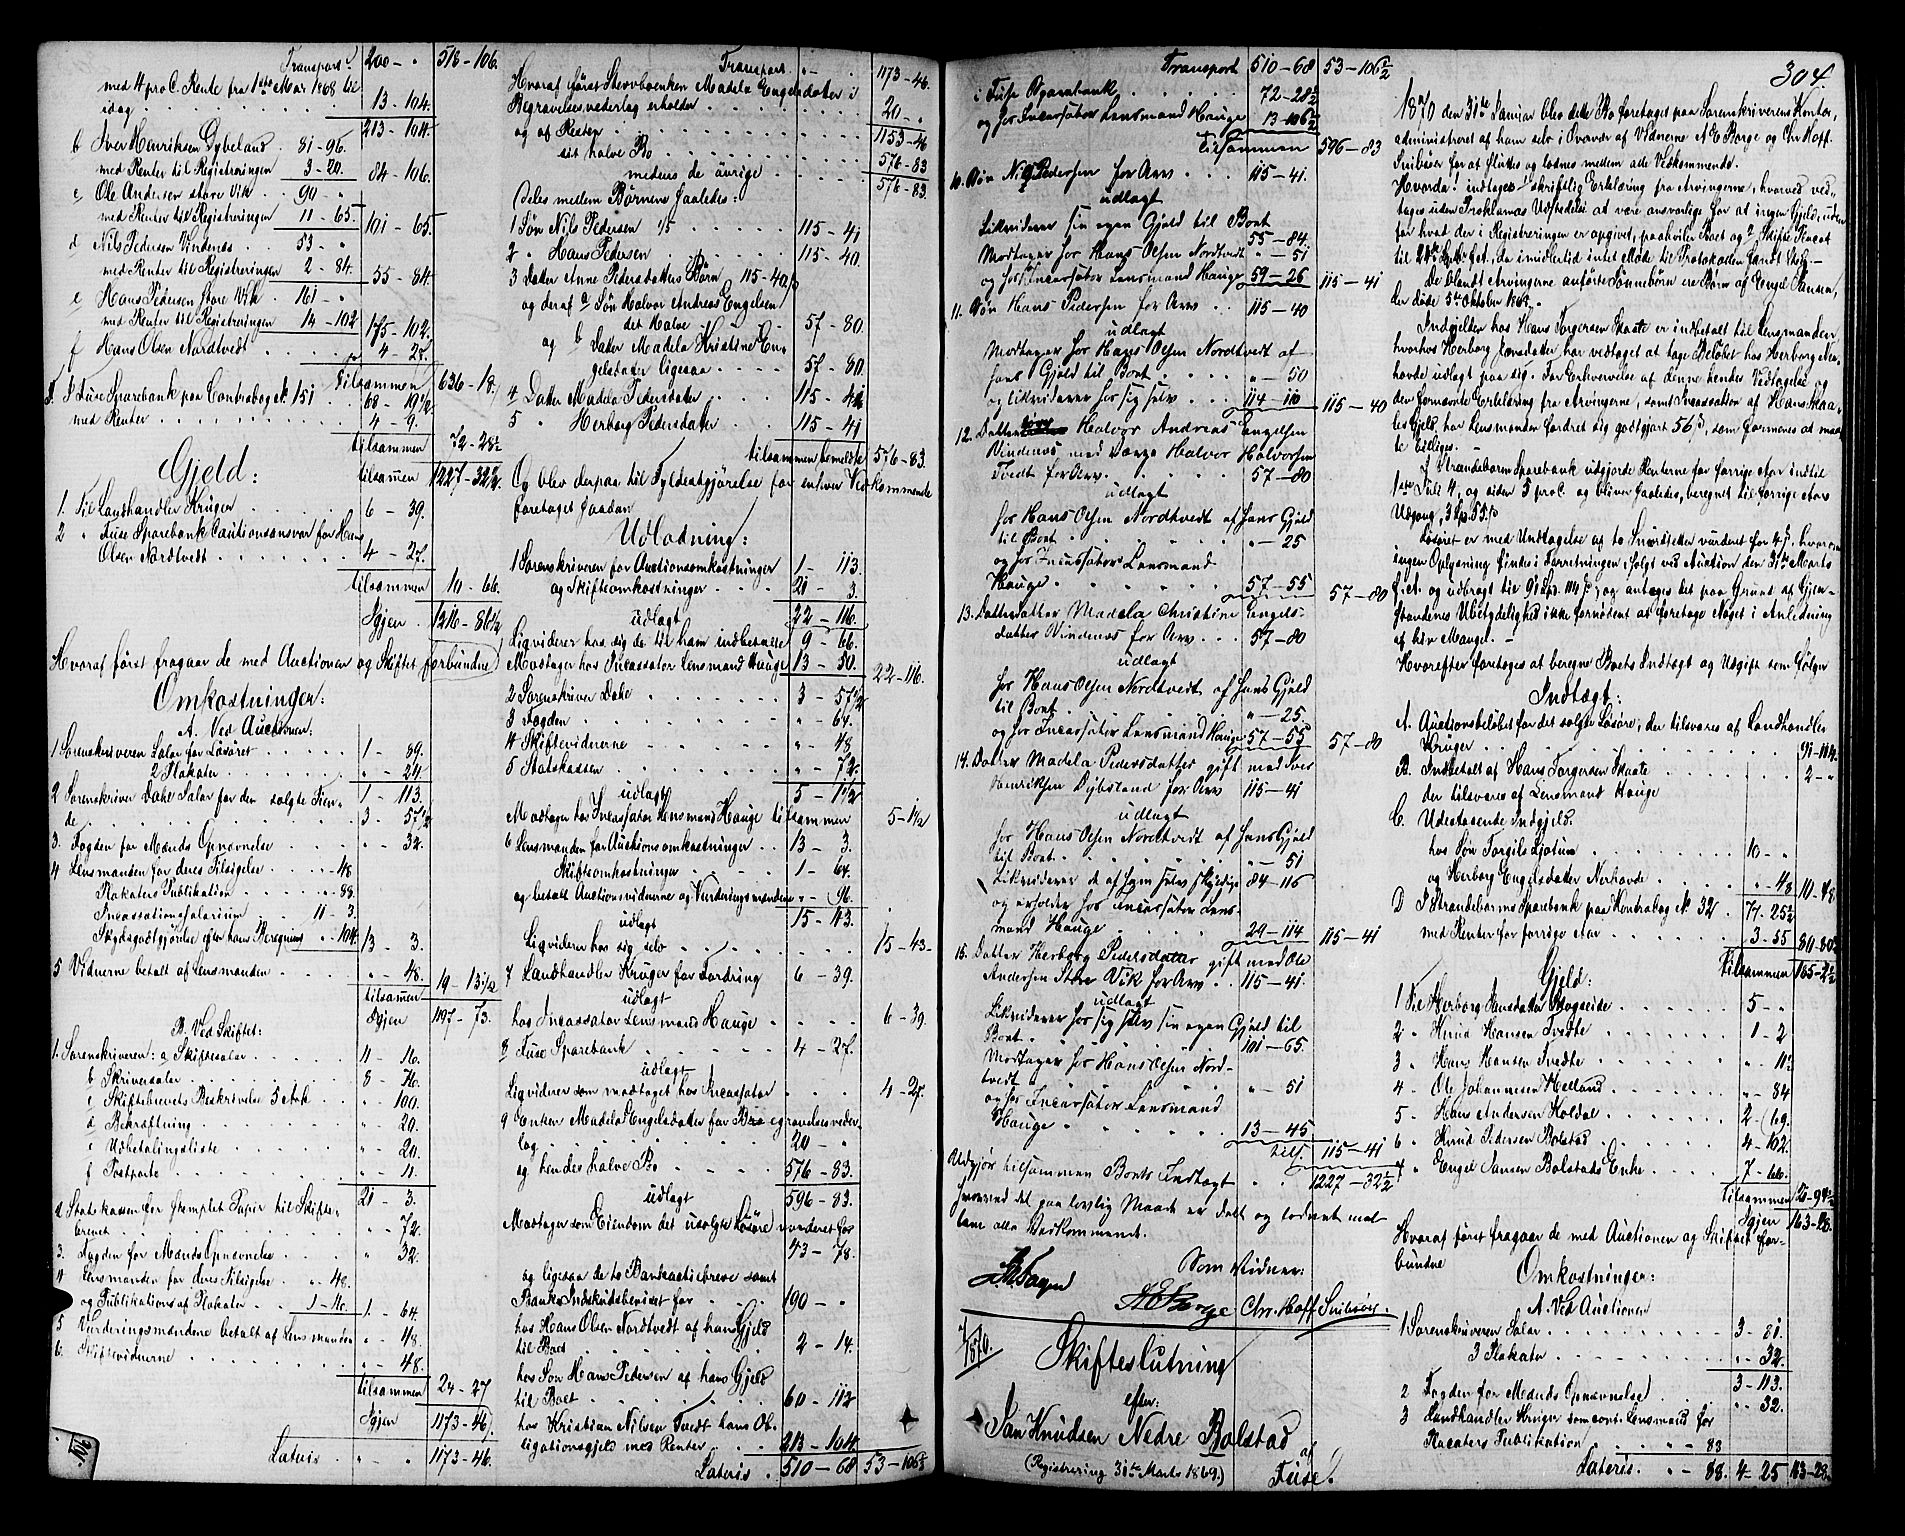 Transport. 200 - " 518 - 106.
med 4 pro C. Rente fra 1ste Mai 1868 til
idag . . . . 13 - 104.
213 - 104.
b Iver Henriksen Dybsland. 81 - 96.
med Renter til Registreringen 3 - 20. 84 - 106.
c Ole Andersen store Vik. 90 - "
med Renter til Registreringen 11 - 65. 101 - 65.
d Nils Pedersen Vindenæs . . 53 - "
med Renter til Registreringen 2 - 84. 55 - 84.
e Hans Pedersen Store Vik. 161 - "
med Renter til Registreringen 14 - 102. 175 - 102.
f Hans Olsen Nordtvedt . . . . 4 - 27.
Tilsammen 636 - 18.
I Fuse Sparebank paa Contrabog No 151 . 68 - 19 1/2
med Renter . . . . 4 - 9.
tilsammen 72 - 28 1/2
Gjeld: tilsammen 1227 - 32 1/2
1. Til Landhandler Krüger . . . . 6 - 39.
2 " Fuse Sparebank Cautionsansvar for Hans
Olsen Nordtvedt . . . . 4 - 27.
tilsammen 10 - 66.
Igjen 1216 - 86 1/2
Hvoraf først fragaar de med Auctionen og Skiftet forbundne
Omkostninger:
A. Ved Auctionen:
1 Sorenskriveren Salar for Løsøret . . . . 1 - 89.
2 Plakater . . . . " - 24.
1 - 113.
2 Sorenskriver Dahe Salar for den solgte Eien-
de . . . . 3 - 57 1/2
3. Fogden for Mænds Opnævnelse . . " - 32.
4 Lensmanden for deres Tilsigelse . " - 48
Plakaters Publikation . . " - 88.
Incassationssalarium . 11 - 3.
Skydsgodtgjørelse efter hans Beregning . " - 104. 13 - 3.
5 Vidnerne betalt af Lensmanden . . . " - 48.
tilsammen 19 - 13 1/2
Igjen 1197 - 73.
B. Ved Skiftet:
1. Sorenskriveren: a Skiftesalar . . . . 11 - 16.
b Skriversalar . . . . 8 - 76.
c Skiftebrevets Beskrivelse 5 Ark . . . " - 100.
d Bekræftning . . . . " - 20.
e Udbetalingsliste . . . . " - 20
f Postporto . . . . " - 11.
21 - 3.
2 Statskassen for stemplet Papir til Skifte-
brevet . . . . " - 72.
3. Fogden for Mænds Opnævnelse . . . " 32.
4 Lensmanden for deres Tilsigelse . " - 40.
og Publikations af Plakater . . 1 - 40. 1 - 64.
5 Vurderingsmændene betalt af Lensmanden " - 48.
6. Skiftevidnerne . . . . " - 48.
tilsammen 24 - 27
Igjen 1173 - 46
Lateris . " - " 1173 - 46.
Transport. " - " 1173 - 46.
Hvoraf først Stervboenken Madela Engelsdatter i
Begravelsesvederlag erholder . . . . 20 - "
og af Resten . . . . 1153 - 46
sit halve Bo . . . . 576 - 83
medens de øvrige . . . . 576 - 83.
Deles mellem Børnene saaledes:
1 Søn Nils Pedersen 1/5 . . 115 - 41
2 " Hans Pedersen . . . . 115 - 40.
3 Datter Anne Pedersdatters Børn 115 - 40,
og deraf a Søn Halvor Andreas Engelsen
det Halve . . . . 57 - 80.
og b Datter Madela Kristine En-
gelsdatter ligesaa . . . . 57 - 80.
4 Datter Madela Pedersdatter . . 115 - 41
5 " Herborg Pedersdatter . . 115 - 41
tilsammen bemeldte 576 - 83.
Og blev derpaa til Fyldestgjørelse for enhver Vedkommende
foretaget saadan
Udlodning:
1 Sorenskriveren for Auctionsomkostninger 1 - 113.
og Skifteomkostninger . . 21 - 3.
udlagt 22 - 116.
Liqviderer hos sig de til ham indbetalte 9 - 66.
Modtager hos Incassator Lensmand Hauge 13 - 50. 22 - 116.
2 Sorenskriver Dahe . . . . 3 - 57 1/2
3 Fogden . . . . " - 64.
4 Skiftevidnerne . . . . " - 48
5 Statskassen . . . . " - 72.
udlagt 5 - 1 1/2
Modtager hos Incassator Lensmand Hauge tilsammen 5 - 1 1/2
6 Lensmanden for Auctionsomkostninger . . 13 - 3.
Skifteomkostninger . . . . 1 - 64.
og betalt Auctionsvidnerne og Vurderingsmændene " - 96.
udlagt 15 - 43.
Liqviderer hos sig selv . . . . 15 - 43 -
7 Landhandler Krüger for Fordring 6 - 39.
udlagt
hos Incassator Lensmand Hauge . . . . 6 - 39.
8 Fuse Sparebank . . . . 4 - 27.
udlagt
Liqviderer som modtaget hos Incassator . . . 4 - 27.
9 Enken Madela Engelsdatter for Begravelsesveder-
lag . . . . 20 - "
og hendes halve Bo . . . . 576 - 83.
udlagt 596 - 83.
Modtager som Eiendom det usolgte Løsøre vurderet for
43 - 78.
og ligesaa de to Bankactiebreve samt
Banks Indskudsbeviset for . . . 190 - "
hos Hans Olsen Nordtvedt af hans Gjeld
til Boet . . . . 2 - 14.
hos Søn Hans Pedersen af hans Gjeld
til Boet . . . . 60 - 112
hos Kristian Nilsen Tvedt hans Ob-
ligationsgjeld med Renter . . 213 - 104.
Lateris . 510 - 68 53 - 106 1/2
Transport 510 - 68 53 - 106 1/2
i Fuse Sparebank . . . . 72 - 28 1/2
og hos Incassator Lensmand Hauge 13 - 106 1/2
Tilsammen 596 - 83
10. Søn Nils Pedersen for Arv . . . 115 - 41.
udlagt
Likviderer sin egen Gjeld til Boet
55 - 84.
Modtager hos Hans Olsen Nordtvedt " - 51
og hos Incassator Lensmand Hauge 59 - 26 115 - 41
11. Søn Hans Pedersen for Arv . . 115 - 40
udlagt
Modtager hos Hans Olsen Nordtvedt af
hans Gjeld til Boet . . . . " - 50
og likviderer hos sig selv . . 114 - 110 115 - 40
12. Dattersøn Halvor Andreas Engelsen
Vindenes med Værge Halvor Halvorsen
Tvedt for Arv . . . . 57 - 80
udlagt
hos Hans Olsen Nordtvedt af hans Gjeld
til Boet . . . . " - 25
og hos Incassator Lensmand
Hauge . . . . 57 - 55 57 - 80
13. Datterdatter Madela Christine Engels-
datter Vindenes for Arv . . . 57 - 80
udlagt
hos Hans Olsen Nordtvedt af hans Gjeld
til Boet . . . . " - 25.
og hos Incassator Lensmand Hauge 57 - 55 57 - 80
14. Datter Madela Pedersdatter gift med Iver
Henriksen Dybsland for Arv 115 - 41
udlagt
hos Hans Olsen Nordtvedt af hans Gjeld
til Boet . . . . " - 51
Likviderer de af ham selv skyldige 84 - 116
og erholder hos Incassator Lens-
mand Hauge . . . . 29 - 114 115 - 41
15. Datter Herborg Pedersdatter gift med Ole
Andersen Store Vik for Arv . . 115 - 41.
udlagt
Likviderer hos sig selv sin egen Gjeld til
Boet . . . . 101 - 65.
Modtager hos Hans Olsen Nord-
tvedt . . . . " - 51
og hos Incassator Lensmand
Hauge . . . . 13 - 45
tils. 115 - 41
Udgjør tilsammen Boets Indtægt . . 1227 - 32 1/2
hvorved det paa lovlig Maade er delt og loddet mel-
lem alle Vedkommende.
Som Vidner:
AEBørge Chr. Hoff Sniksøir.
/1870.
Skifteslutning
efter:
Jan Knudsen Nedre Bolstad
(Registrering 31te Marts 1869.) af Fuse.
304.
1870 den 31te Januar blev dette Bo foretaget paa Sorenskriverens Kontor,
administreret af ham selv i Overvær af Vidnerne A E Børge og Chr Hoff.
Sniksøir for at sluttes og loddes mellem alle Vedkommende.
Hvorda 1 indtages skriftlig Erklæring fra Arvingerne, hvorved ved-
tages uden Proklamas Udstedelse at være ansvarlige for at ingen Gjeld, uden
for hvad der i Registreringen er opgivet, paahviler Boet og 2 Skifte
til
De blandt Arvingerne anførte Sønnebørn ere Børn af Engel Jansen,
der døde 5te Oktober 1869.
Indgjelden hos Hans Torgersen Skaate er indbetalt til Lensmanden
hvorhos Herborg Jansdatter har vedtaget at tage Beløbet hos Herborg Ner-
hovde udlagt paa sig. For Erhvervelse af denne hendes Vedtagelse og
den fornævnte Erklæring fra Arvingerne, samt Incassation af Hans Skaa-
tes Gjeld, har Lensmanden fordret sig godtgjort 56 ß, som formenes at maat-
te billiges. -
I Strandebarm Sparebank udgjorde Renterne for forrige Aar indtil
1ste Juli 4, og siden 5 pro C. og bliver saaledes, beregnet til forrige Aars
Udgang, 3 Sp. 55 ß
Løsøret er med Undtagelse af to vurderet for 4 ß, hvorom
ingen Oplysning findes i Forretningen, solgt ved Auction den 31te Marts
f. A. og udbragt til 91 Sp. 114 ß, og antages det paa Grund af Gjen-
standenes Ubetydelighed ikke fornødent at foretage Noget i Anledning
af hiin Mangel. -
Hvorefter foretages at beregne Boets Indtægt og Udgift som følger
Indtægt:
A. Auctionsbeløbet for det solgte Løsøre, der tilsvares af Landhandler
Krüger . . . . 91 - 114.
B. Indbetalt af Hans Torgersen Skaate . . . . 2 - "
der tilsvares af Lensmand Hauge
C. Udestaaende Indgjeld.
hos Søn Torgils Ljotun . . . . 10 - "
og Herborg Engelsdatter Nerhovde . . . . " - 48 10 - 48
D I Strandebarms Sparebank paa Kontrabog No 32 . 77 - 25 1/2
med Renter for forrige Aar . . . . 3 - 55 80 - 80 1/2
Tilsammen 185 - 2 1/2
Gjeld:
1 Til Herborg Jansdatter Skogseide . . . 5 - "
2 " Knud Hansen Tvedte . . . . 1 - 2
3 " Hans Hansen Tvedte . . . . " 11 1/2
4 - Ole Johannesen Helland . . . . " 84
5 - Hans Andersen Holdal . . . . 2 - 69.
6 " Knud Pedersen Bolstad . . . . 4 - 102.
7 " Engel Jansen Bolstads Enke . . . . 7 - 66.
tilsammen
Igjen 163 - 28.
Hvoraf først fragaar de med Auctionen og Skiftet for-
bundne
Omkostninger:
A. Ved Auctionen
1 Sorenskriveren Salar . . . . 3 - 81.
3 Plakater . . . . " - 32.
3 - 113.
2 Fogden for Mænds Opnævnelse . . . " - 32.
3 Landhandler Krüger som const. Lensmand for
Placaters Publikation . . " - 88
Lateris. " - 88. 4 - 25 163 - 28.